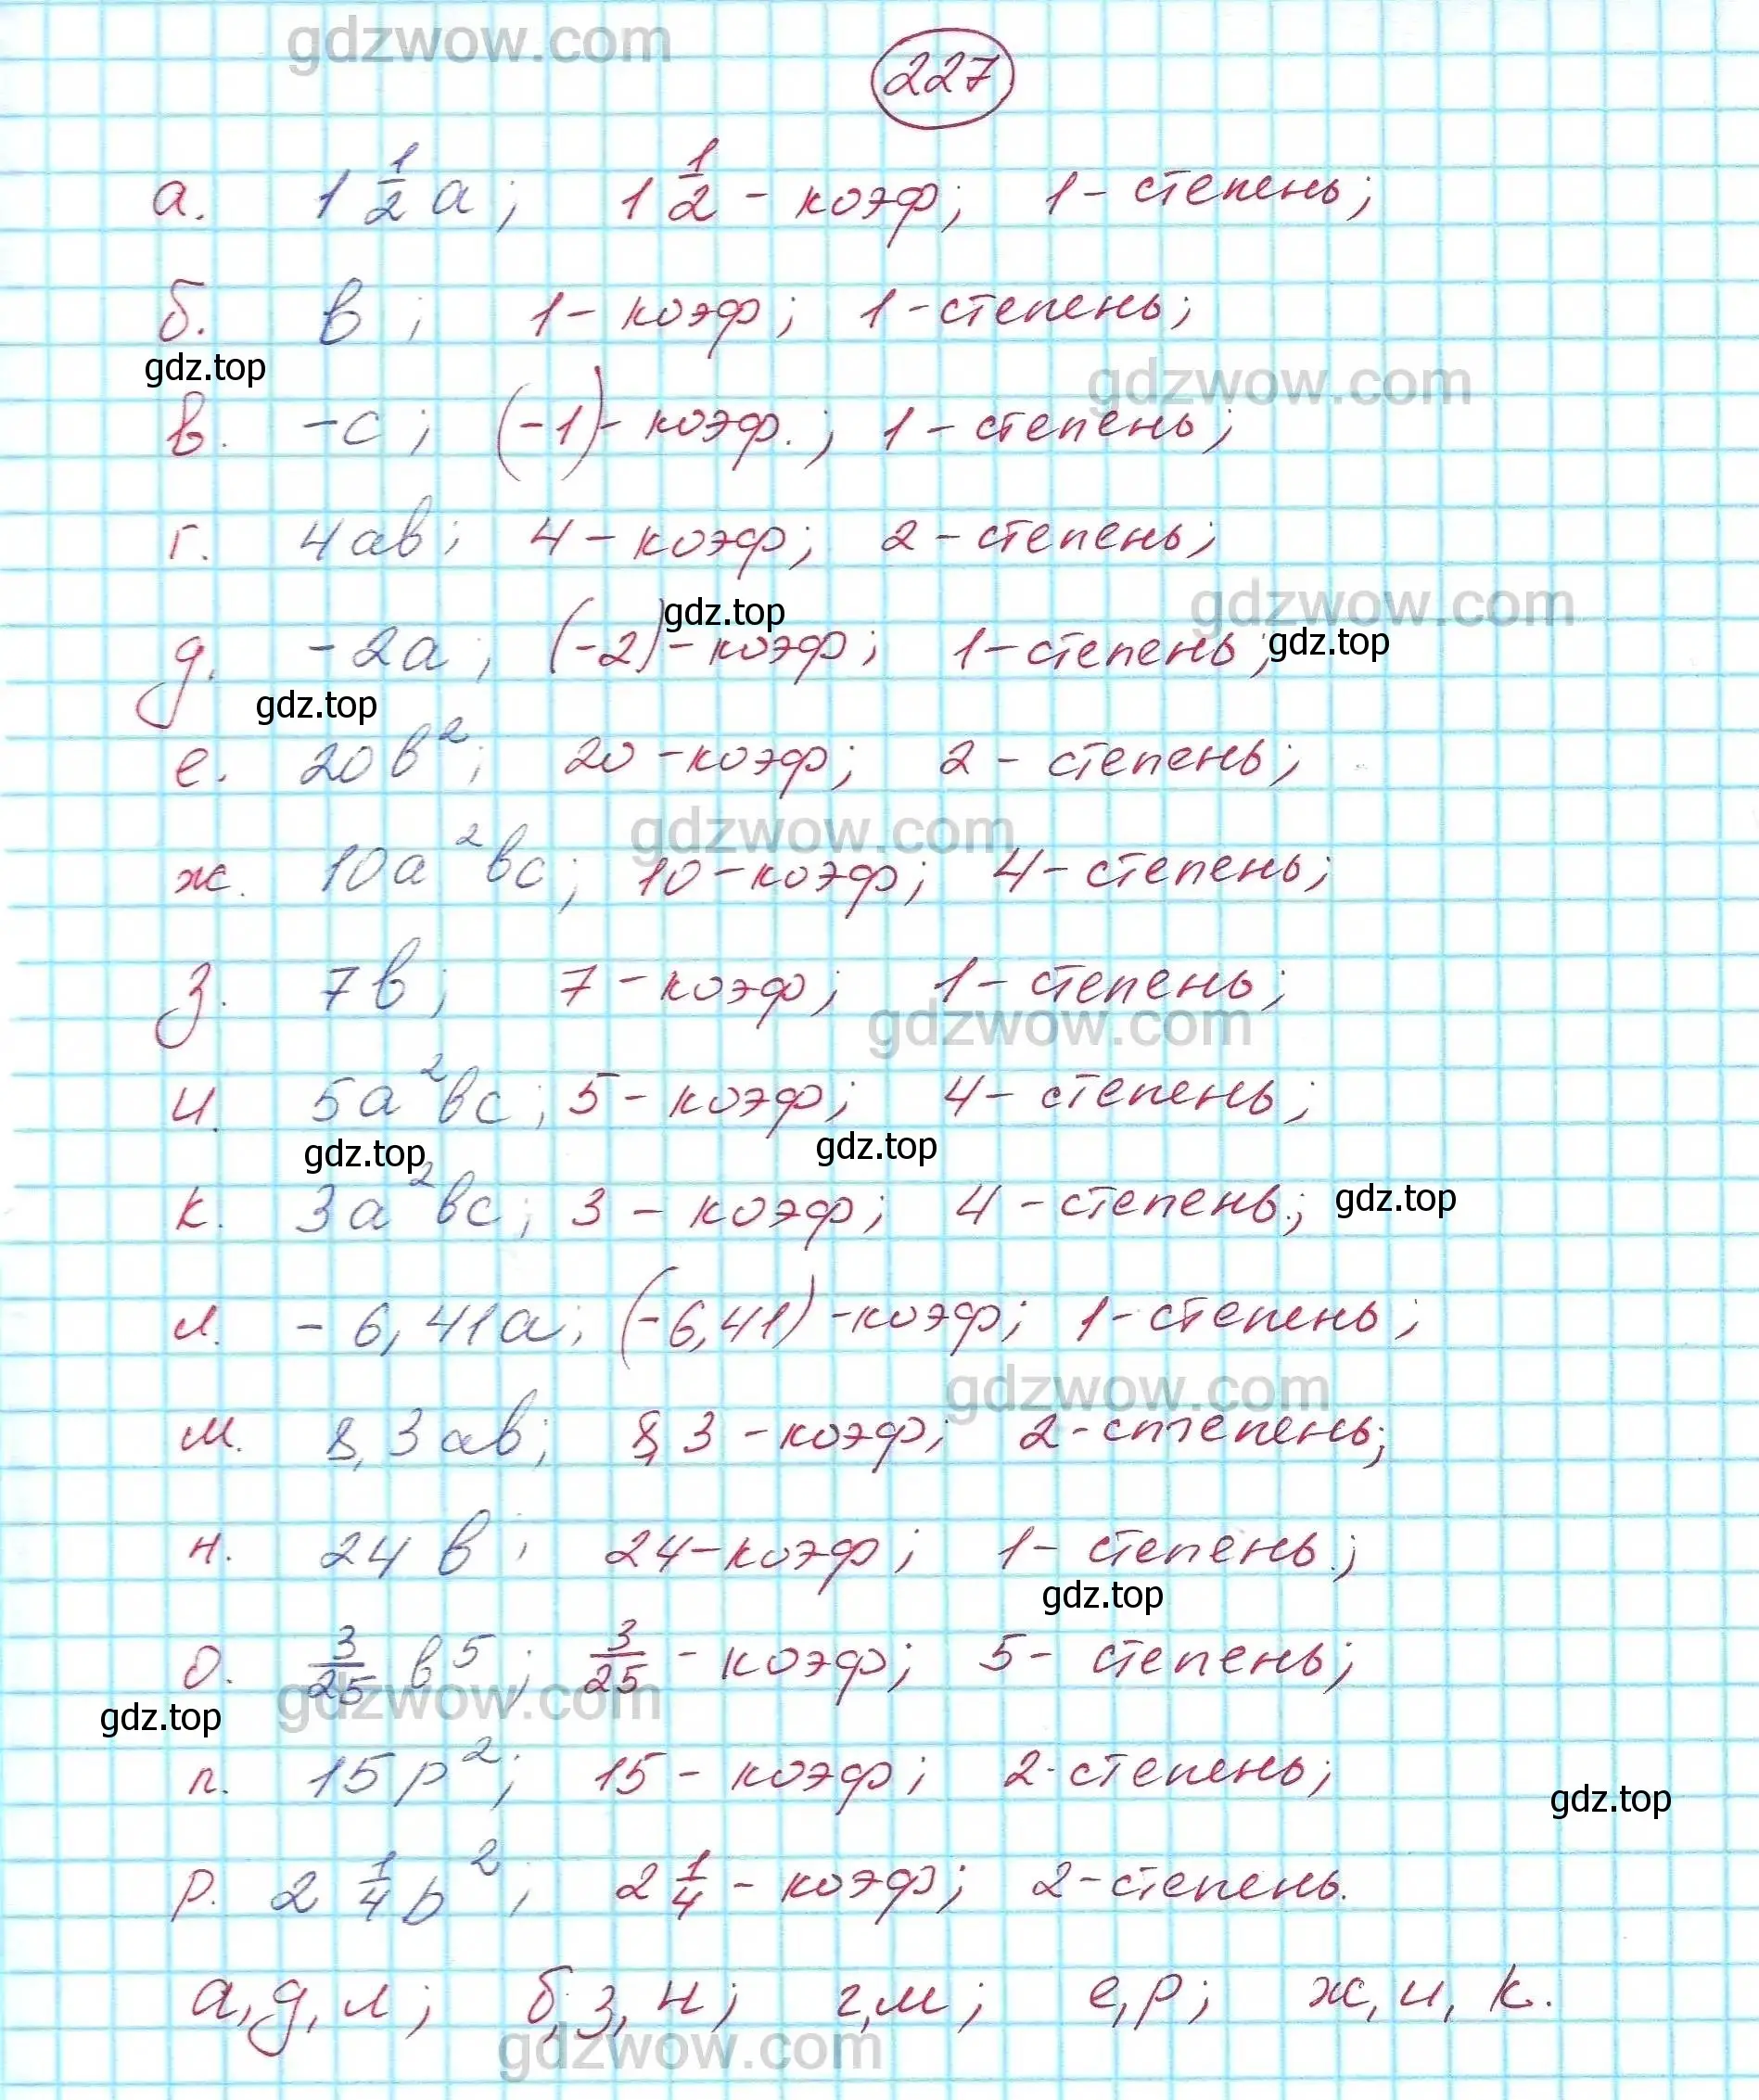 gdzwow.com
227
а. 1 1/2 а; 1 1/2 - коэф; 1 - степень;
б. в; 1 - коэф; 1 - степень;
gdz.top
gdzwow.com
в. -с; (-1) - коэф.; 1 - степень;
г. 4ав; 4 - коэф; 2 - степень;
gdzwow.com
gdz.top
gdz.top
д. -2а; (-2) - коэф; 1 - степень;
gdz.top
е. 20в²; 20 - коэф; 2 - степень;
gdzwow.com
ж. 10а²вс; 10 - коэф; 4 - степень;
з. 7в; 7 - коэф; 1 - степень;
gdzwow.com
и. 5а²вс; 5 - коэф; 4 - степень;
gdz.top
gdz.top
к. 3а²вс; 3 - коэф; 4 - степень.;
gdz.top
л. -6,41а; (-6,41) - коэф; 1 - степень;
gdzwow.com
м. 8,3ав; 8,3 - коэф; 2 - степень;
н. 24в; 24 - коэф; 1 - степень.;
gdz.top
о. 3/25 в⁵; 3/25 - коэф; 5 - степень;
gdzwow.com
gdz.top
п. 15р²; 15 - коэф; 2 - степень;
gdz.top
р. 2 1/4 b²; 2 1/4 - коэф; 2 - степень.
а, д, л; б, з, н; г, м; е, р; ж, и, к.
gdzwow.com